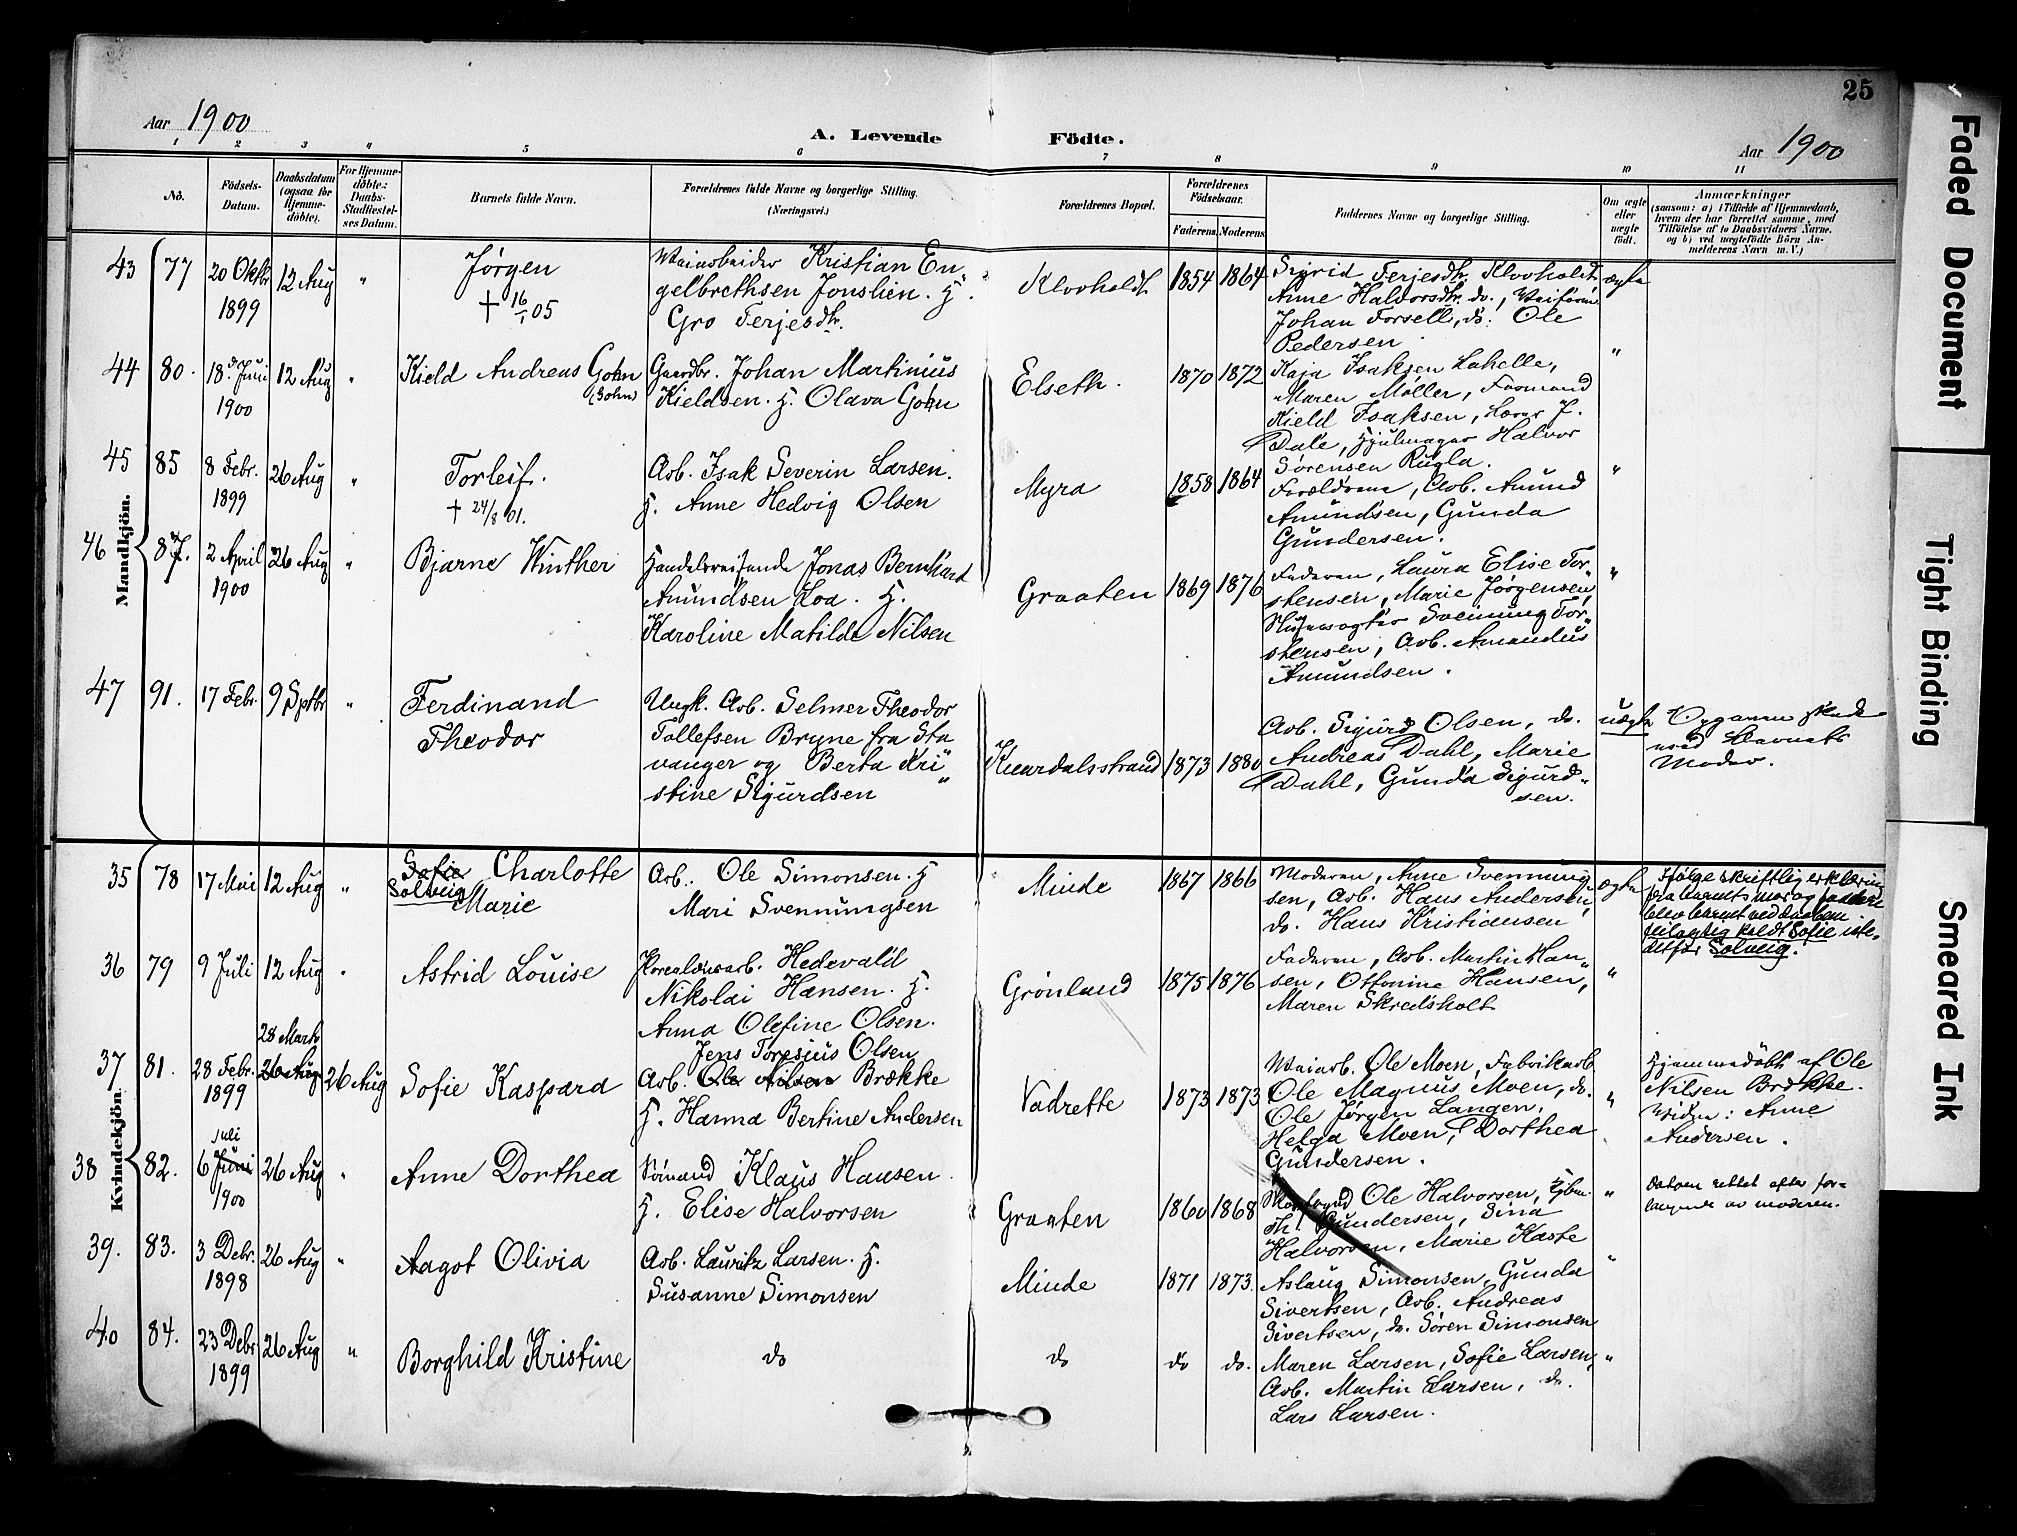 25
Aar 1900
A. Levende Födte.
Aar 1900
1 2 3 4 5 6 7 8 9 10 11
No.
Födsels-
Datum.
Daabsdatum
(ogsaa for
Hjemme-
döbte).
For Hjemme-
döbte:
Daabs-
Stadfæstel-
ses Datum.
Barnets fulde Navn.
Forældrenes fulde Navne og borgerlige Stilling.
(Næringsvei.)
Forældrenes Bopæl.
Forældrenes
Födselsaar.
Faderens. Moderens.
Faddernes Navne og borgerlige Stilling.
Om ægte
eller
uægte
födt.
Anmærkninger
(saasom: a) i Tilfælde af Hjemmedaab,
hvem der har forrettet samme, med
Tilföielse af to Daabsvidners Navne.
og b) ved uægtefödte Börn An-
melderens Navn m. V.)
Mandkjön.
43 77 20 Oktbr 1899 12 Aug "
Jørgen
† 16/1 05
Veiarbeider Kristian En-
gelbrethsen Jonslien. H.
Gro Terjesdtr.
Klovholdt 1854 1864
Sigrid Terjesdtr. Klovholdt
Anne Halvorsdtr. do.,
Johan Forsell, do. Ole
Pedersen
ægte
44 80. 18d Juni 1900 12 Aug "
Kield Andreas Gohn
(Gohn)
Gaardbr. Johan Martinius
Kieldsen. H. Olava Gohn
Elseth. 1870 1872
Kaja Isaksen Lahelle,
Maren Möller, Formand
Kield Isaksen, Lærer J.
Dale, Hjulmager Halvor
Sørensen Rugla.
"
45 85 8 Febr. 1899 26 Aug "
Torleif.
† 24/8 01.
Arb. Isak Severin Larsen.
H. Anne Hedvig Olsen
Myra 1858 1864
Forældrene, Arb. Amund
Amundsen, Gunda
Gundersen.
"
46 87. 2 April 1900 26 Aug "
Bjarne Winther
Handelsreisende Jonas Bernhard
Amundsen Loa. H.
Karoline Matilde Nilsen
Graaten 1869 1876
Faderen, Laura Elise Tor-
stensen, Marie Jørgensen,
Svenning Tor-
stensen, Arb. Amandus
Amundsen.
"
47 91. 17 Febr. 9 Septbr "
Ferdinand
Theodor
Ungk. Arb. Selmer Theodor
Tollefsen Bryne fra Sta
vanger og Berta Kri-
stine Sigurdsen
Knardalsstrand 1873 1880
Arb. Sigurd Olsen, do.
Andreas Dahl, Marie
Dahl, Gunda Sigurd-
sen.
uægte
Opgaven skede
ved Barnets
Moder.
Kvindekjön.
35 78 17 Mai 12 Aug "
Sofie Charlotte
Solveig Marie
Arb. Ole Simonsen. H
Mari Svennungsen
Minde 1867 1866
Moderen, Anne Svennung
sen, Arb. Hans Andersen,
do. Hans Kristiansen
ægte
Ifølge skriftlig erklæring
fra barnets mor og faddere
blev barnet ved daaben
feilagtig kaldt Sofie iste-
detfor Solveig.
36 79 9 Juli 12 Aug "
Astrid Louise
Porcelænsarb. Hedevald
Nikolai Hansen. H.
Anna Olefine Olsen.
Grönland 1875 1876
Faderen, Arb. Martin Han-
sen, Ottonine Hansen,
Maren Skredsholt
"
37 81. 28 Febr. 1899 28 Marts 26 Aug 26 Aug
Sofie Kaspara
Jens Toresius Olsen
Arb. Ole Nilsen Brække
H. Hanna Bertine Andersen
Vadrette 1873 1873
Veiarb. Ole Moen, Fabrikarb.
Ole Magnus Moen, do.
Ole Jørgen Langen,
Helga Moen, Dorthea
Gundersen.
"
Hjemmedöbt af Ole
Nilsen Brække.
Vidne: Anne
Andersen.
38 82. 6 Juni Juli 1900 26 Aug "
Anne Dorthea
Sömand Klaus Hansen.
H. Elise Halvorsen
Graaten 1860 1868
Ole Halvorsen,
Gundersen, Sina
Halvorsen, Marie Kaste
"
Datoen rettet efter for-
langende av moderen.
39. 83. 3 Debr. 1898 26 Aug "
Aagot Olivia
Arb. Lauritz Larsen. H.
Susanne Simonsen
Minde 1871 1873.
Aslaug Simonsen, Gunda
Sivertsen, Arb. Andreas
Sivertsen, do. Sören Simonsen
"
40 84. 23 Debr 1899 26 Aug "
Borghild Kristine
do
do do do.
Maren Larsen, Sofie Larsen,
Arb. Martin Larsen, do.
Lars Larsen.
"
Faded Document
Tight Binding
Smeared Ink